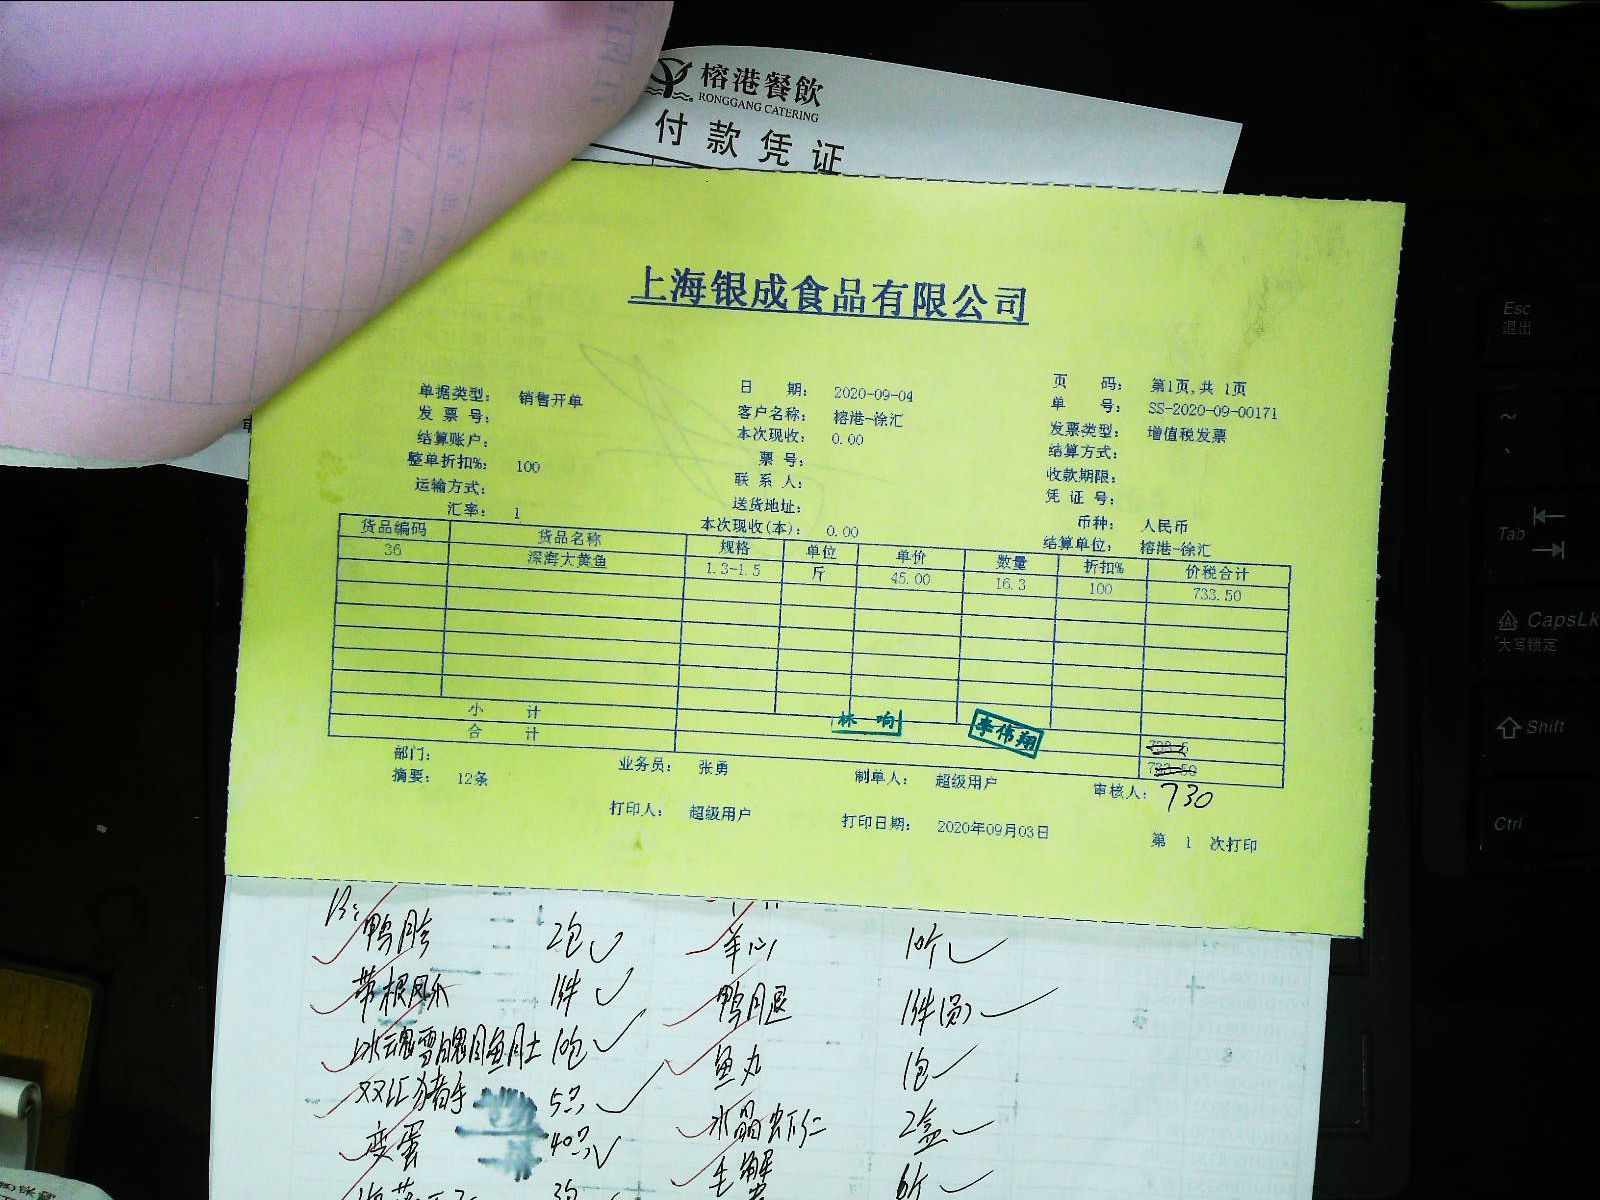 榕港餐飲
RONGGANG CATERING
付款凭证
上海银成食品有限公司
单据类型： 销售开单 日 期： 2020-09-04 页 码： 第1页,共 1页
发 票 号： 客户名称： 榕港-徐汇 单 号： SS-2020-09-00171
结算账户： 本次现收： 0.00 发票类型： 增值税发票
整单折扣%： 100 票 号： 结算方式：
运输方式： 联 系 人： 收款期限：
汇率： 1 送货地址： 凭 证 号：
本次现收(本)： 0.00 币种： 人民币
结算单位： 榕港-徐汇
货品编码 货品名称 规格 单位 单价 数量 折扣% 价税合计
36 深海大黄鱼 1.3-1.5 斤 45.00 16.3 100 733.50
小 计
合 计
林响
李伟翔
730
部门： 业务员： 张勇 制单人： 超级用户 审核人：
摘要： 12条
打印人： 超级用户 打印日期： 2020年09月03日 第 1 次打印
鸭胗 2包 羊心 10斤
带根凤爪 1件 鸭腿 1件
10包 鱼丸 1包
双汇猪手 5只 水晶虾仁 2盒
变蛋 40只 毛蟹 6斤
Esc
退出
Tab
CapsLk
大写锁定
Shift
Ctrl